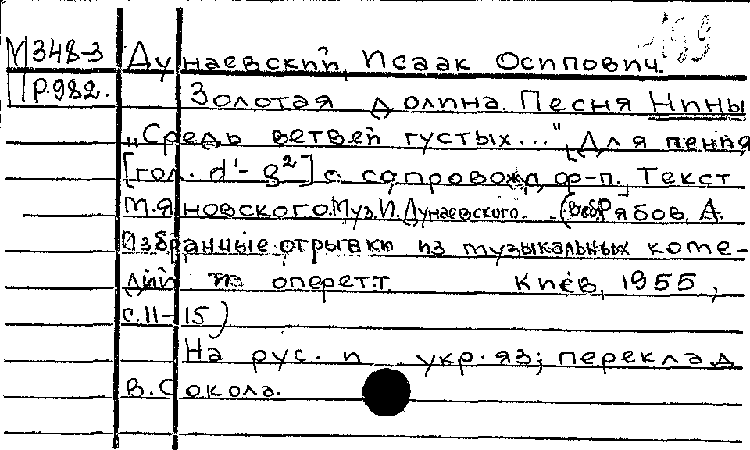 М348-3 Дунаевский, Исаак Осипович.
Р.982. Золотая долина. Песня Нины
„Средь ветвей густых..." Для пения
[гол. d'- g²] с сопровожд. ф-п. Текст
М. Яновского. Муз. И. Дунаевского. (В сб. Рябов, А.
Избранные отрывки из музыкальных коме-
дий и оперетт. Киев, 1955,
с. 11-15)
На рус. и укр. яз; переклад
В. Сокола.